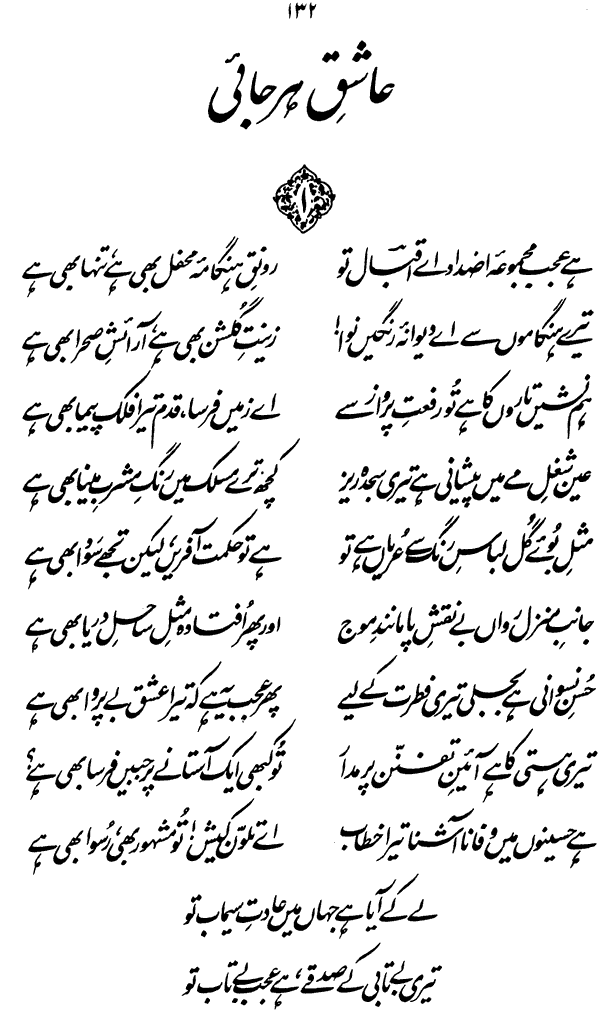 ۱۳۲
عاشقِ ہرجائی
۱
ہے عجب مجموعۂ اضداد اے اقبالؔ تو رونقِ ہنگامۂ محفل بھی ہے، تنہا بھی ہے
تیرے ہنگاموں سے اے دیوانۂ رنگیں نوا! زینتِ گلشن بھی ہے، آرائشِ صحرا بھی ہے
ہم نشیں تاروں کا ہے تُو رفعتِ پرواز سے اے زمیں فرسا، قدم تیرا فلک پیما بھی ہے
عین شغلِ مے میں پیشانی ہے تیری سجدہ ریز کچھ ترے مسلک میں رنگِ مشربِ مینا بھی ہے
مثلِ بُوئے گُل لباسِ رنگ سے عُریاں ہے تو ہے تو حکمت آفریں، لیکن تجھے سَودا بھی ہے
جانبِ منزل رواں بے نقشِ پا مانندِ موج اور پھر اُفتادہ مثلِ ساحلِ دریا بھی ہے
حُسنِ نسوانی ہے بجلی تیری فطرت کے لیے پھر عجب یہ ہے کہ تیرا عشق بے پروا بھی ہے
تیری ہستی کا ہے آئینِ تفنّن پر مدار تُو کبھی ایک آستانے پر جبیں فرسا بھی ہے؟
ہے حسینوں میں وفا ناآشنا تیرا خطاب اے تلوّن کیش! تُو مشہور بھی، رُسوا بھی ہے
لے کے آیا ہے جہاں میں عادتِ سیماب تو
تیری بے تابی کے صدقے، ہے عجب بے تاب تو